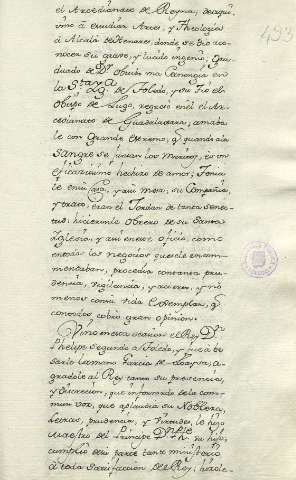 493
el Arcedianato de Reyna, de aqui
vino à estudiar Artes, y Theologia
à Alcalà de Henares, donde se dio a co-
nocer su grave, y lucido ingenio, Gra-
duado de Dr. obtubo una Canongia en
la Sta. Yga. de Toledo, y su Tio el
Obispo de Lugo, regreso en él el Arce-
dianato de Guadalaxara, amaba
le con grande estremo, q quando a la
sangre se juntan los meritos, es un
eficacissimo hechizo de amor; Tenia
le en su Casa, y assi mesa, su Compañia,
y trato, eran el Jordan de tanta senec-
tud: hicieronle Obrero de su Santa
Iglesia, y assi en este oficio, como
en todos los negocios que se le encom-
mendaban, procedia con tanta pru-
dencia, vigilancia, y acierto, y no
menos con su vida Exemplar, q
con todos cobrò gran opinion.
Vino en esta sazon el Rey Dn.
Phelipe segundo à Toledo, y fue à be-
sarle la mano Garcia de Loaysa, a-
gradole al Rey tanto su presencia,
y discrecion, que informado de la com-
mun voz, que aplaudia su Nobleza,
Letras, prudencia, y Virtudes, le hizo
Maestro del Principe Dn. Phe. su hijo,
cumpliò de su parte tanto ministerio
à toda satisfaccion de el Rey, hizole